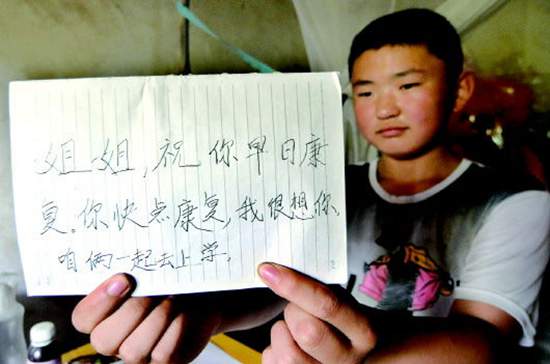 姐姐,祝你早日康
复。你快点康复,我很想你,
咱俩一起去上学。